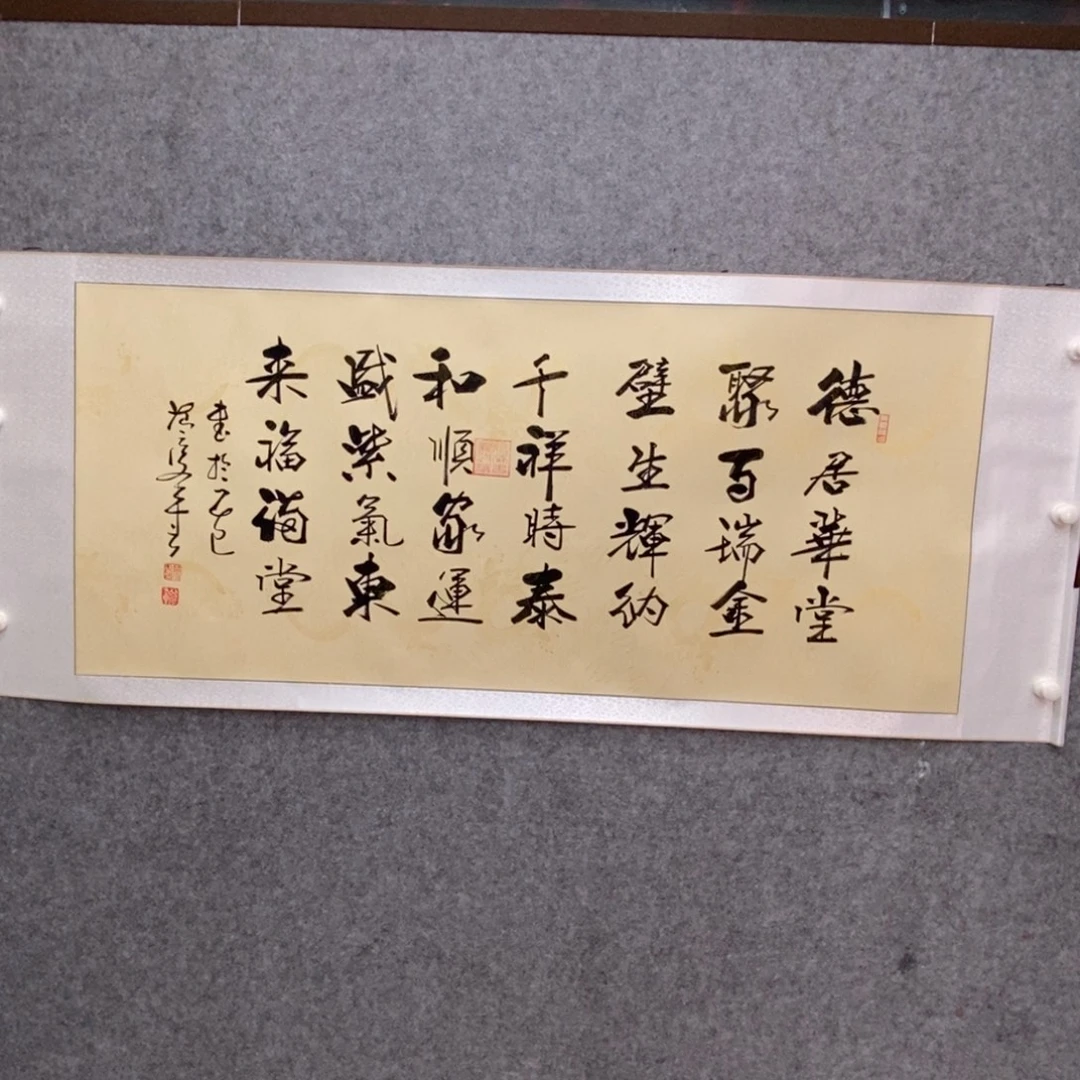 德居華堂
聚百瑞金
壁生輝納
千祥時泰
和順家運
盛紫氣東
来福满堂
書於乙巳